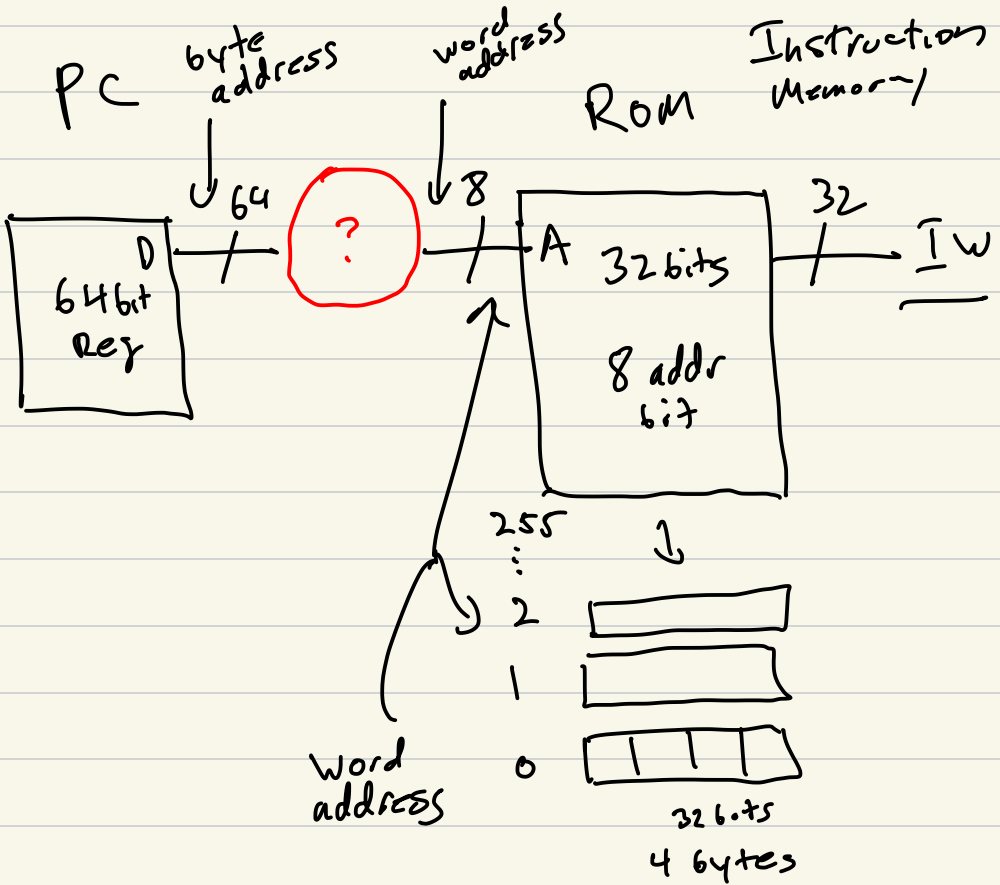 PC
byte
address
word
address
Instruction
Memory
ROM
64
8
32
D
64 bit
Reg
?
A
32 bits
8 addr
bit
IW
255
⋮
2
1
0
word
address
32 bits
4 bytes